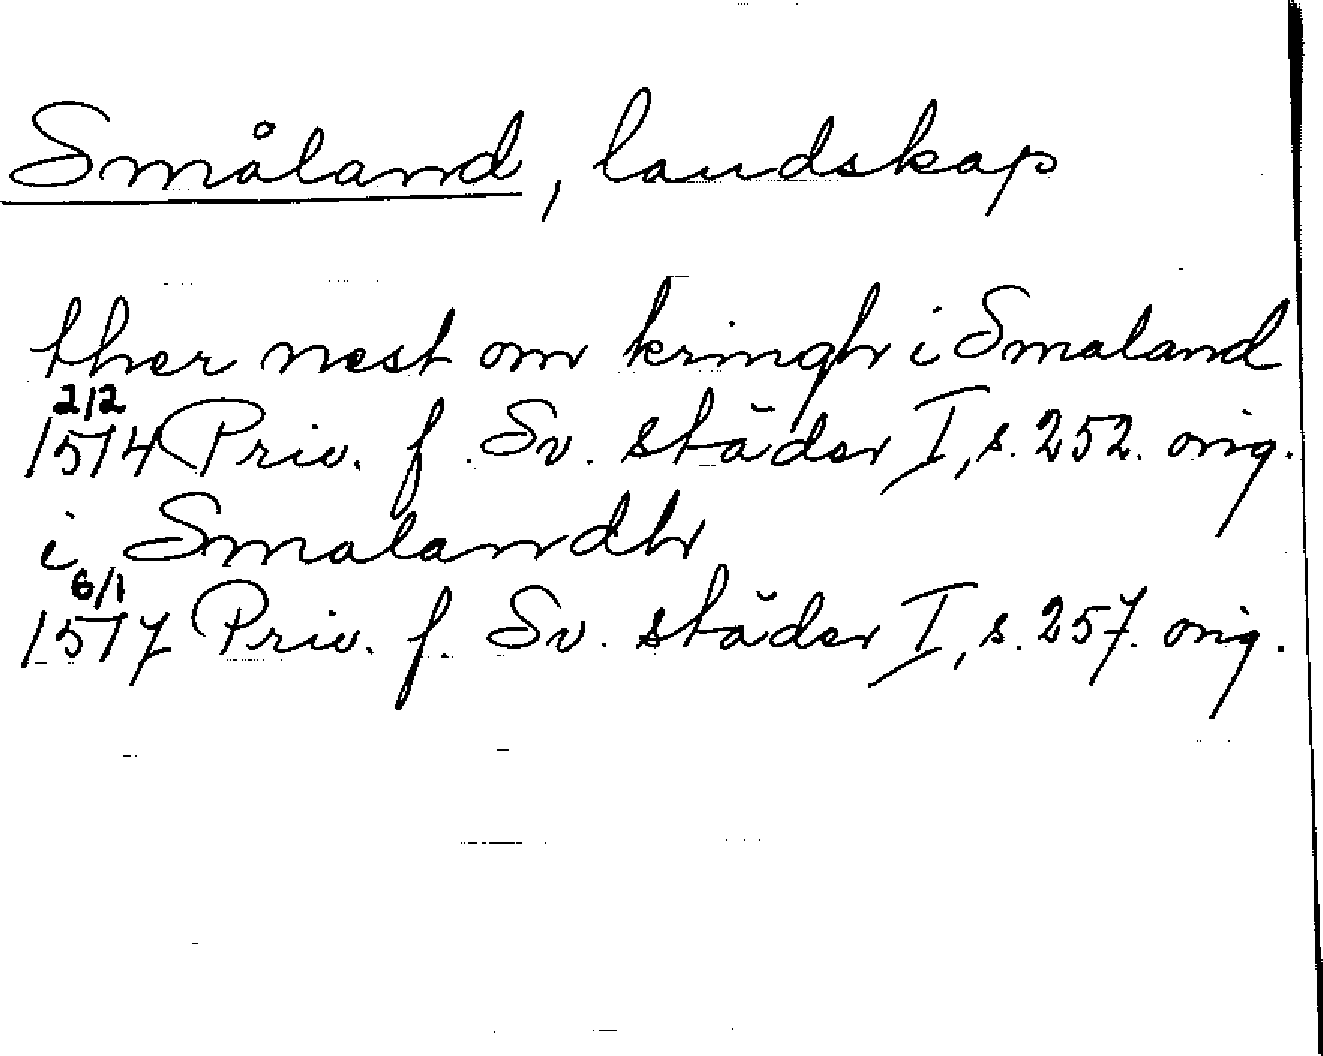 Småland, landskap
ther nest om kringh i Smaland
2/2
1514 Priv. f. Sv. städer I, s. 252. orig.
i Smalandh
6/1
1517 Priv. f. Sv. städer I, s. 257. orig.